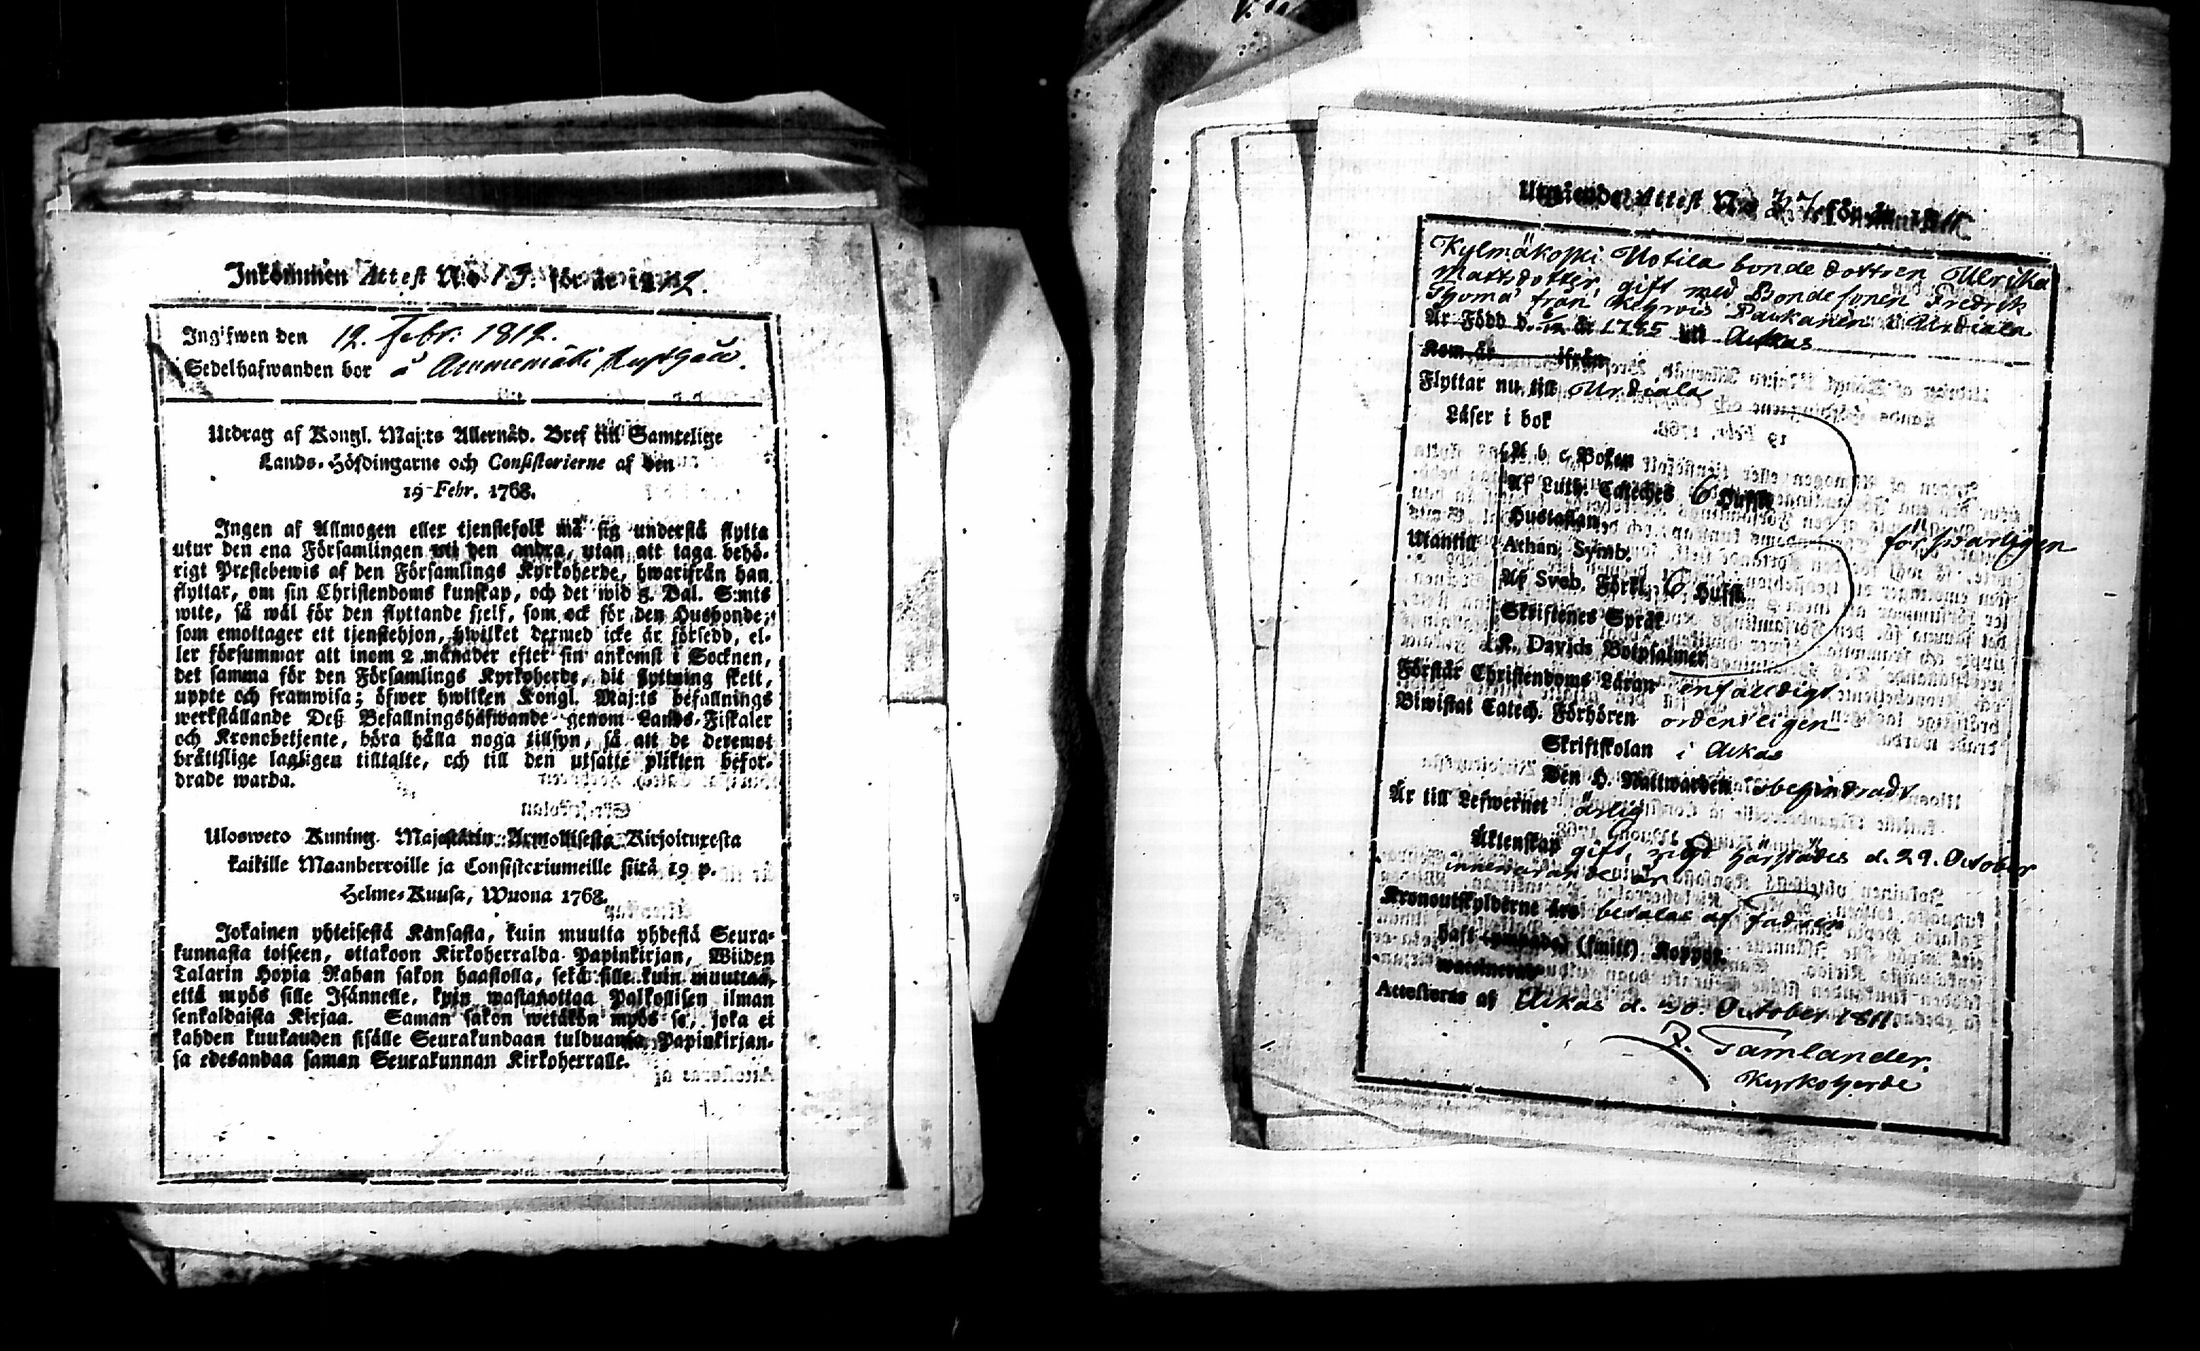 Inkommen Attest N:o 13. för år 1812.
Ingifwen den 12. Febr. 1812.
Sedelhafwanden bor å Ammemäki
Utdrag af Kongl. Maj:ts Allernåd. Bref till Samtelige
Lands-Höfdingarne och Consistorierne af den
19 Febr. 1768.
Ingen af Allmogen eller tjenstefolk må sig understå flytta
utur den ena Församlingen uti den andra, utan att taga behö-
rigt Prestebewis af den Församlings Kyrkoherde, hwarifrån han
flyttar, om sin Christendoms kunskap, och det wid 5. Dal. S:mts
wite, så wäl för den flyttande sielf, som ock för den Husbonde,
som emottager ett tjenstehjon, hwilket dermed icke är försedd, el-
ler försummar att inom 2 månader efter sin ankomst i Socknen,
det samma för den Församlings Kyrkoherde, dit flyttning skett,
uppte och framwisa; öfwer hwilken Kongl. Maj:ts befallnings
werkställande Deß Befallningshafwande genom Lands-Fiskaler
och Kronobetjente, böra hålla noga tillsyn, så att de deremot
bråttslige lagligen tilltalte, och till den utsatte plikten befor-
drade warda.
Ulosweto Kuning. Majestätin Armollisesta Kirjoituxesta
kaikille Maanherroille ja Consistoriumeille siitä 19 p.
Helme-Kuusa, Wuona 1768.
Jokainen yhteisestä Kansasta, kuin muutta yhdestä Seura-
kunnasta toiseen, ottakoon Kirkoherralda Papinkirjan, Wiiden
Talarin Hopia Rahan sakon haastolla, sekä sille kuin muuttaa,
että myös sille Isännelle, kuin wastanottaa Palkollisen ilman
senkaldaista Kirjaa. Saman sakon wetäkön myös se, joka ei
kahden kuukauden sisälle Seurakundaan tulduansa Papinkirjan-
sa edesandaa saman Seurakunnan Kirkoherralle.
Utgående Attest N:o 37 för år 1811.
Kylmäkoski Notila bonde dottren Ullrika
Mattsdotter, gift med Bondesonen Fredrik
Thoma från Kehrois Paukanen i Urdiala
Är Född d. år 1785 i Ackas
Kom år ifrån
Flyttar nu till Urdiala
Läser i bok
A b c Boken
Af Luth. Cateches 6 Hufst.
Hustaflan
försvarligen
Utantill Athan. Symb.
Af Sveb. Förkl. 6. Hufst.
Skriftenes Språk
K. Davids Botpsalmer
Förstår Christendoms Läran enfaldigt
Biwistat Catech. Förhören ordenteligen
Skriftskolan i Ackas
Den H. Nattwarden obehindradt
Är till Lefwernet ärlig
Äktenskap gift, vigd härstädes d. 29. October
innevarande år
Kronoutskylderne äro betalas af fadren
Haft (smitt) Koppor.
waccinerat
Attesteras af Ackas d. 30. October 1811.
Tamlander.
Kyrkoherde